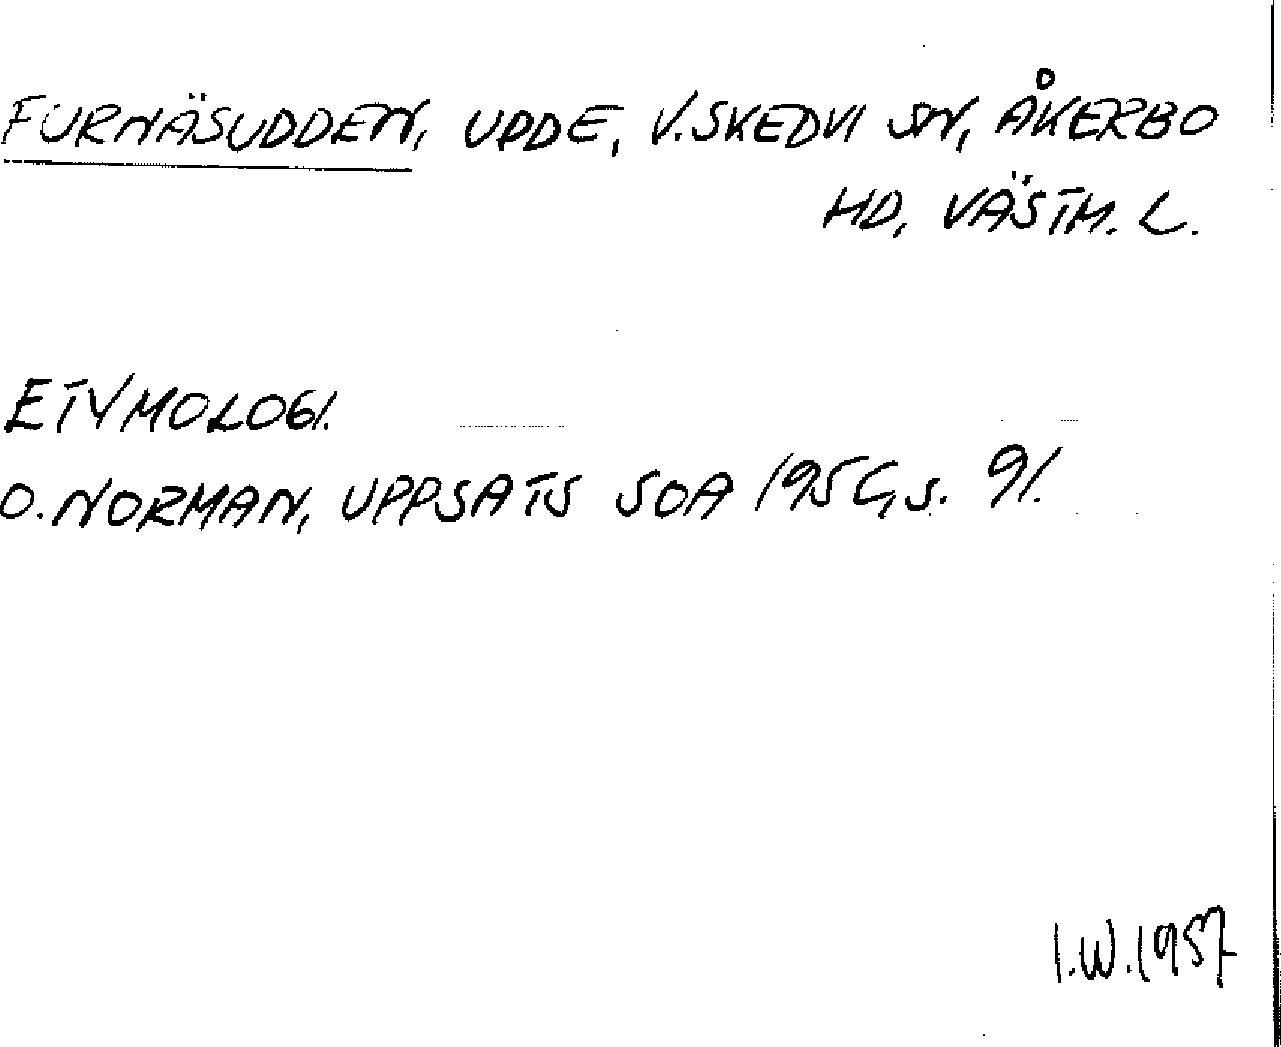 FURNÄSUDDEN, UDDE, V. SKEDVI SN, ÅKERBO
HD, VÄSTM. L.
ETYMOLOGI.
O. NORMAN, UPPSATS SOA 1956, s. 91.
I.W. 1957